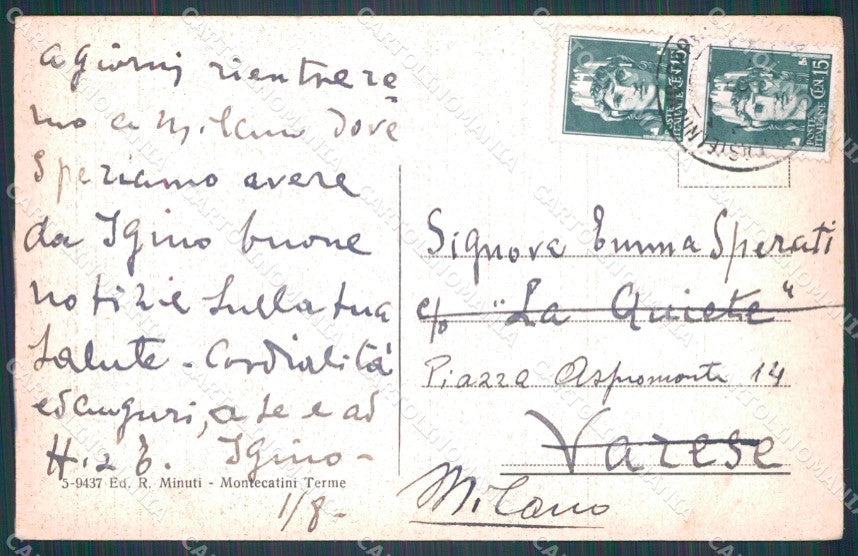 a giorni rientrere
mo a Milano dove
Speriamo avere
da Igino buone
notizie sulla tua
salute - Cordialità
ed auguri, a te e ad
Igino -
1/8-
5-9437 Ed. R. Minuti - Montecatini Terme
POSTE ITALIANE CEN. 15
POSTE ITALIANE CEN. 15
Signora Emma Sperati
c/o "La Quiete"
Piazza Aspromonte 14
Varese
Milano
CARTOLINOMANIA